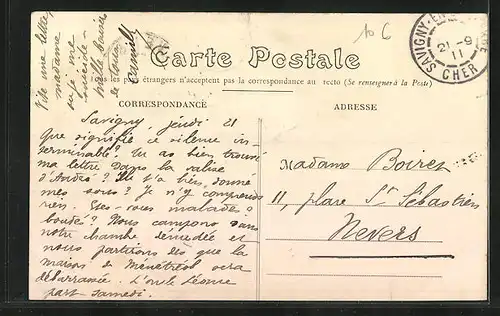 Vite une lettre,
madame
10 C
Carte Postale
Tous les pays étrangers n'acceptent pas la correspondance au recto (Se renseigner à la Poste)
SAVIGNY-EN-
21-9
11
CHER
CORRESPONDANCE
ADRESSE
Savigny, jeudi 21
Que signifie ce silence in-
terminable? Tu as bien trouvé
ma lettre dans la valise
d'André? Il t'a bien donné
mes sous? Je n'y comprends
rien. Etes-vous malades?
boudés? Nous campons dans
notre chambre dénudée et
nous partirons dès que la
maison de Ménétréol sera
débarrassée. L'oncle Léonce
part samedi.
Madame Boirez
11, place St Sébastien
Nevers